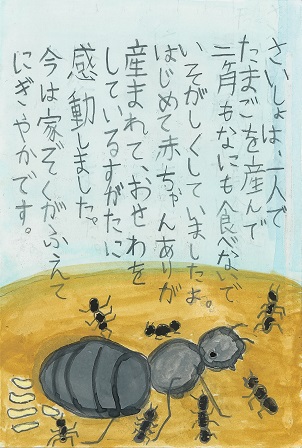 さいしょは、一人で
たまごを産んで
二ヶ月もなにも食べないで
いそがしくしていましたよ。
はじめて赤ちゃんありが
産まれて、おせわを
しているすがたに
感動しました。
今は家ぞくがふえて
にぎやかです。